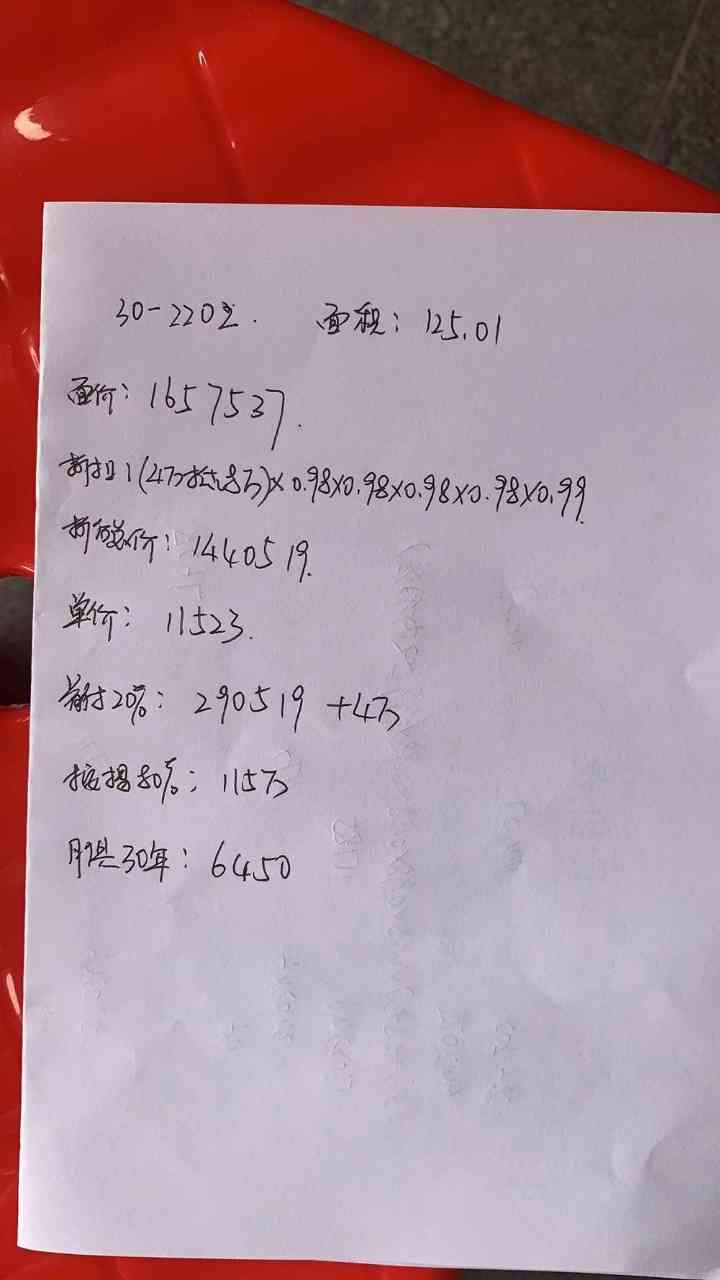 30-2202. 面积: 125.01
面价: 1657537.
折扣: (4万抵8万)×0.98×0.98×0.98×0.98×0.99
折后总价: 1440519.
单价: 11523.
首付20%: 290519 +4万
按揭80%: 115万
月供30年: 6450